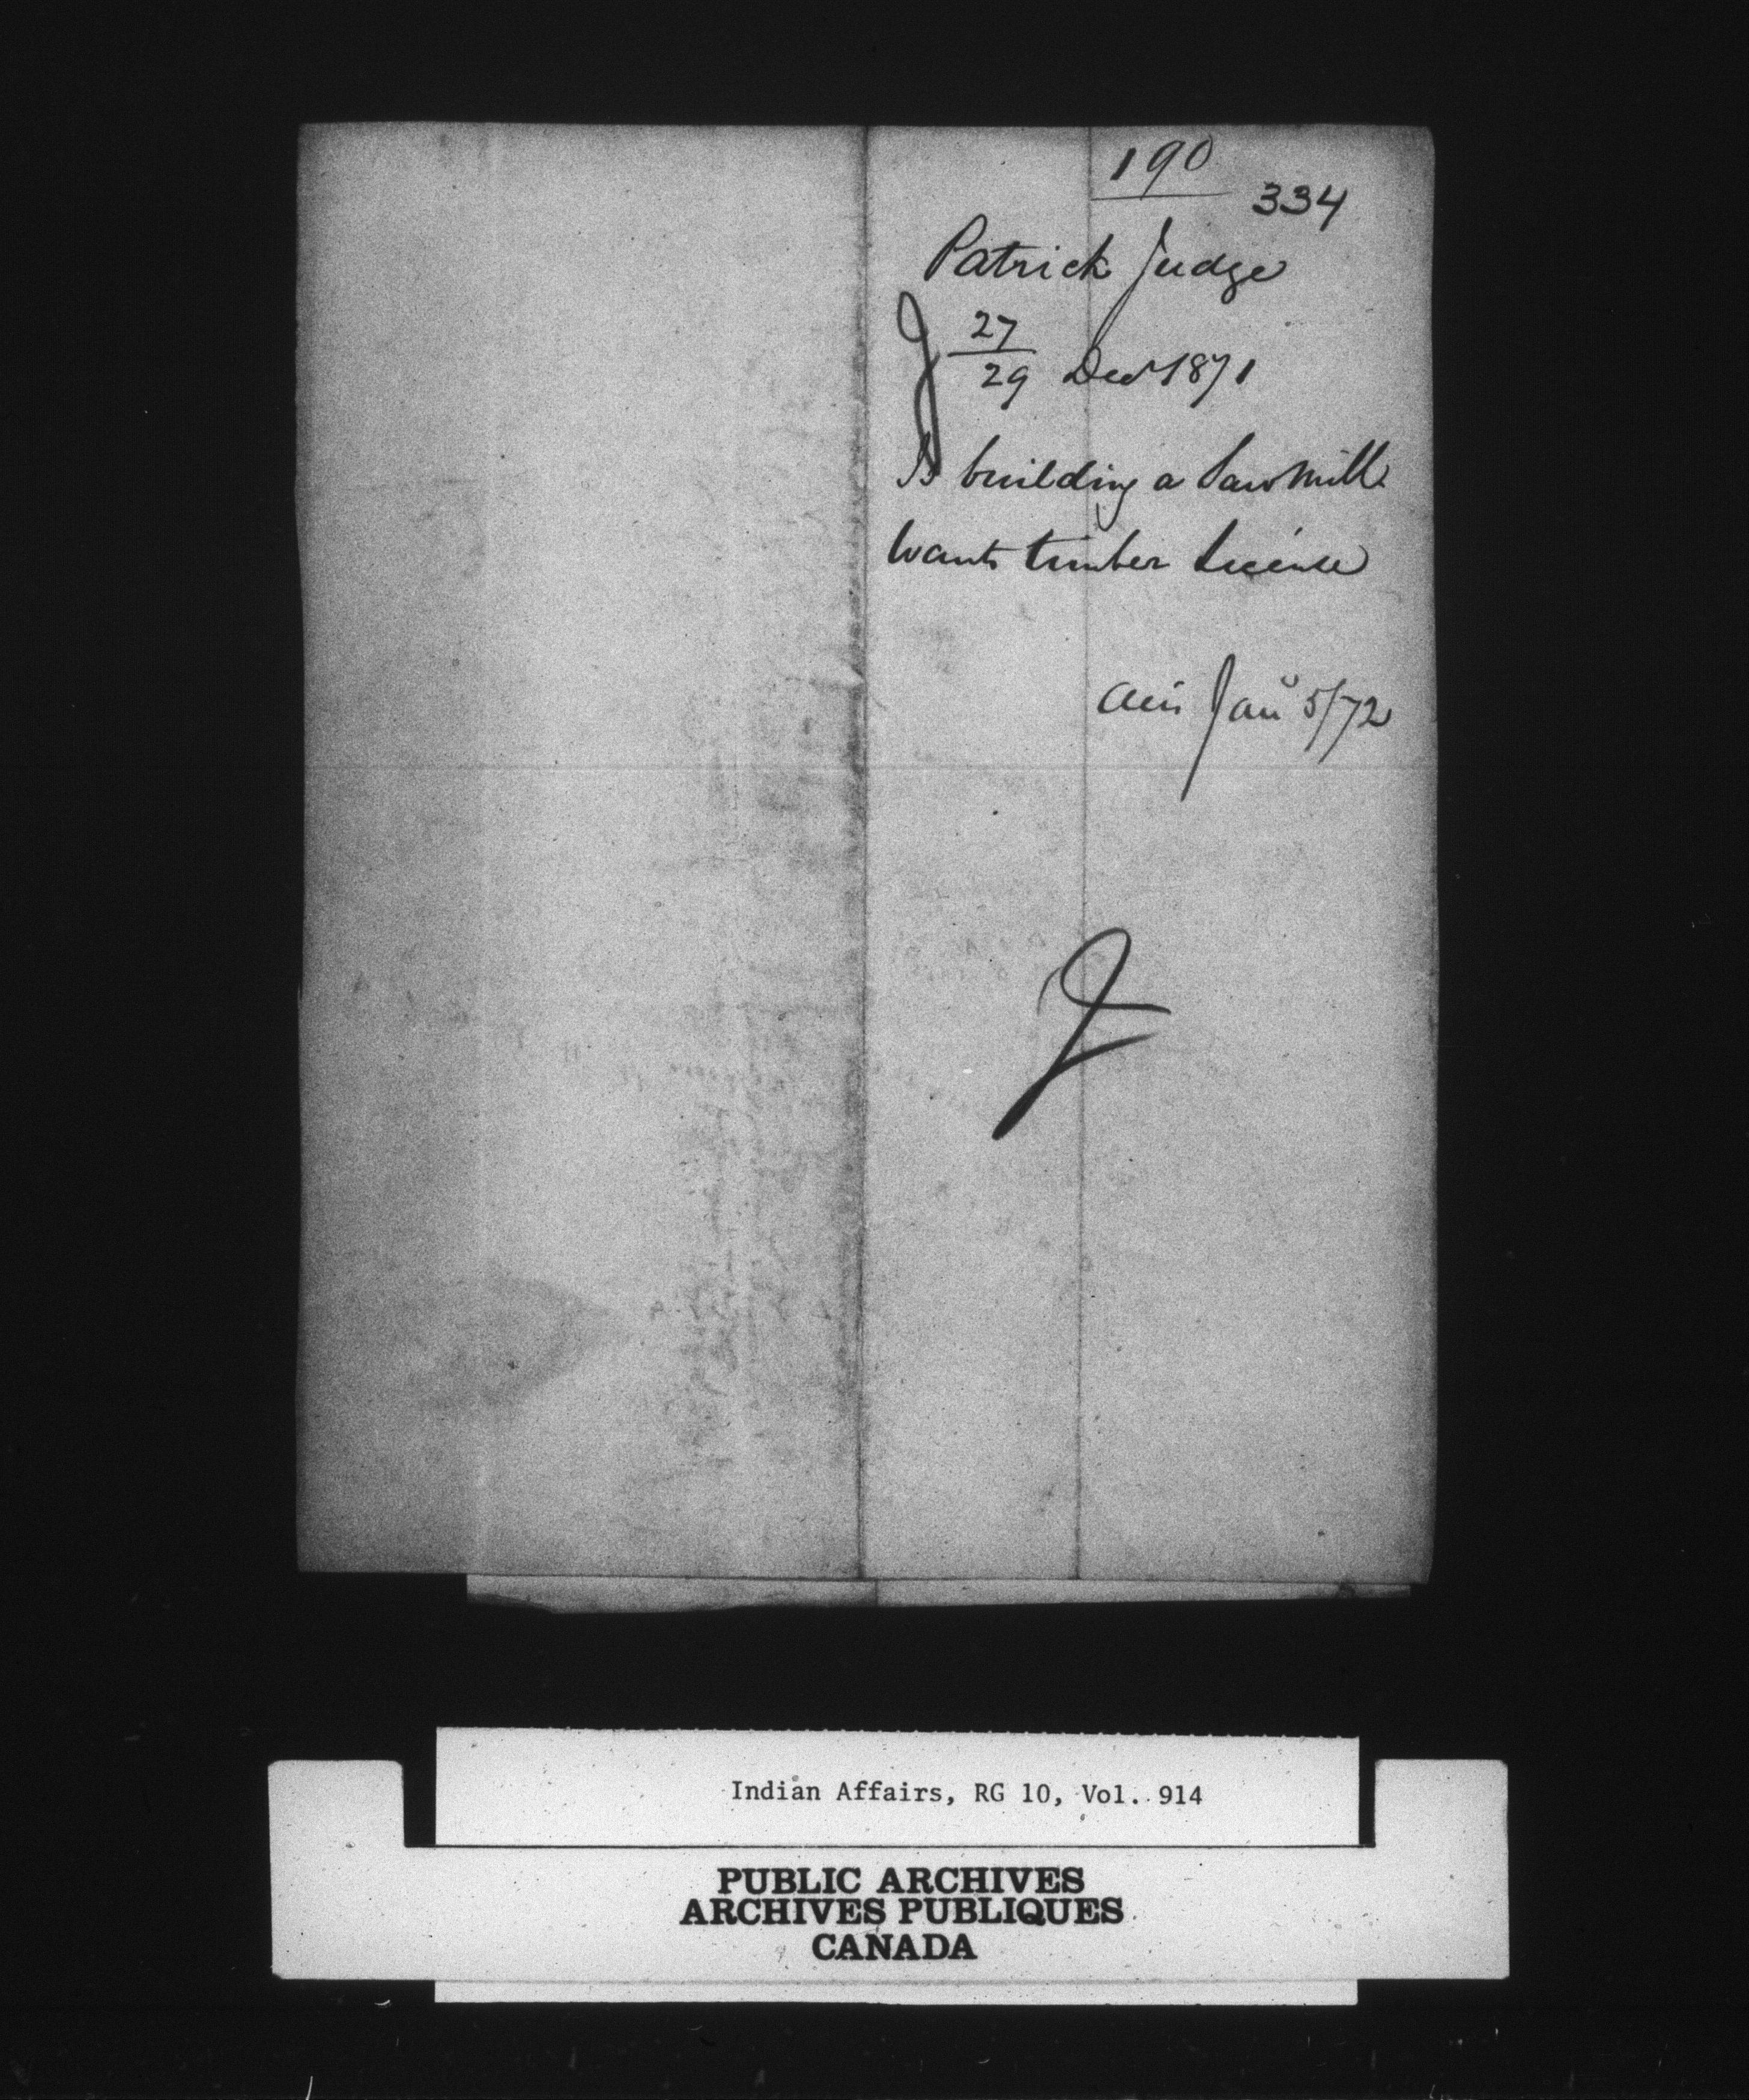 190
334
Patrick Judge
J 27/29 Decr 1871
Is building a Sawmill
Wants timber License
Jany 5/72
J
Indian Affairs, RG 10, Vol. 914
PUBLIC ARCHIVES
ARCHIVES PUBLIQUES
CANADA